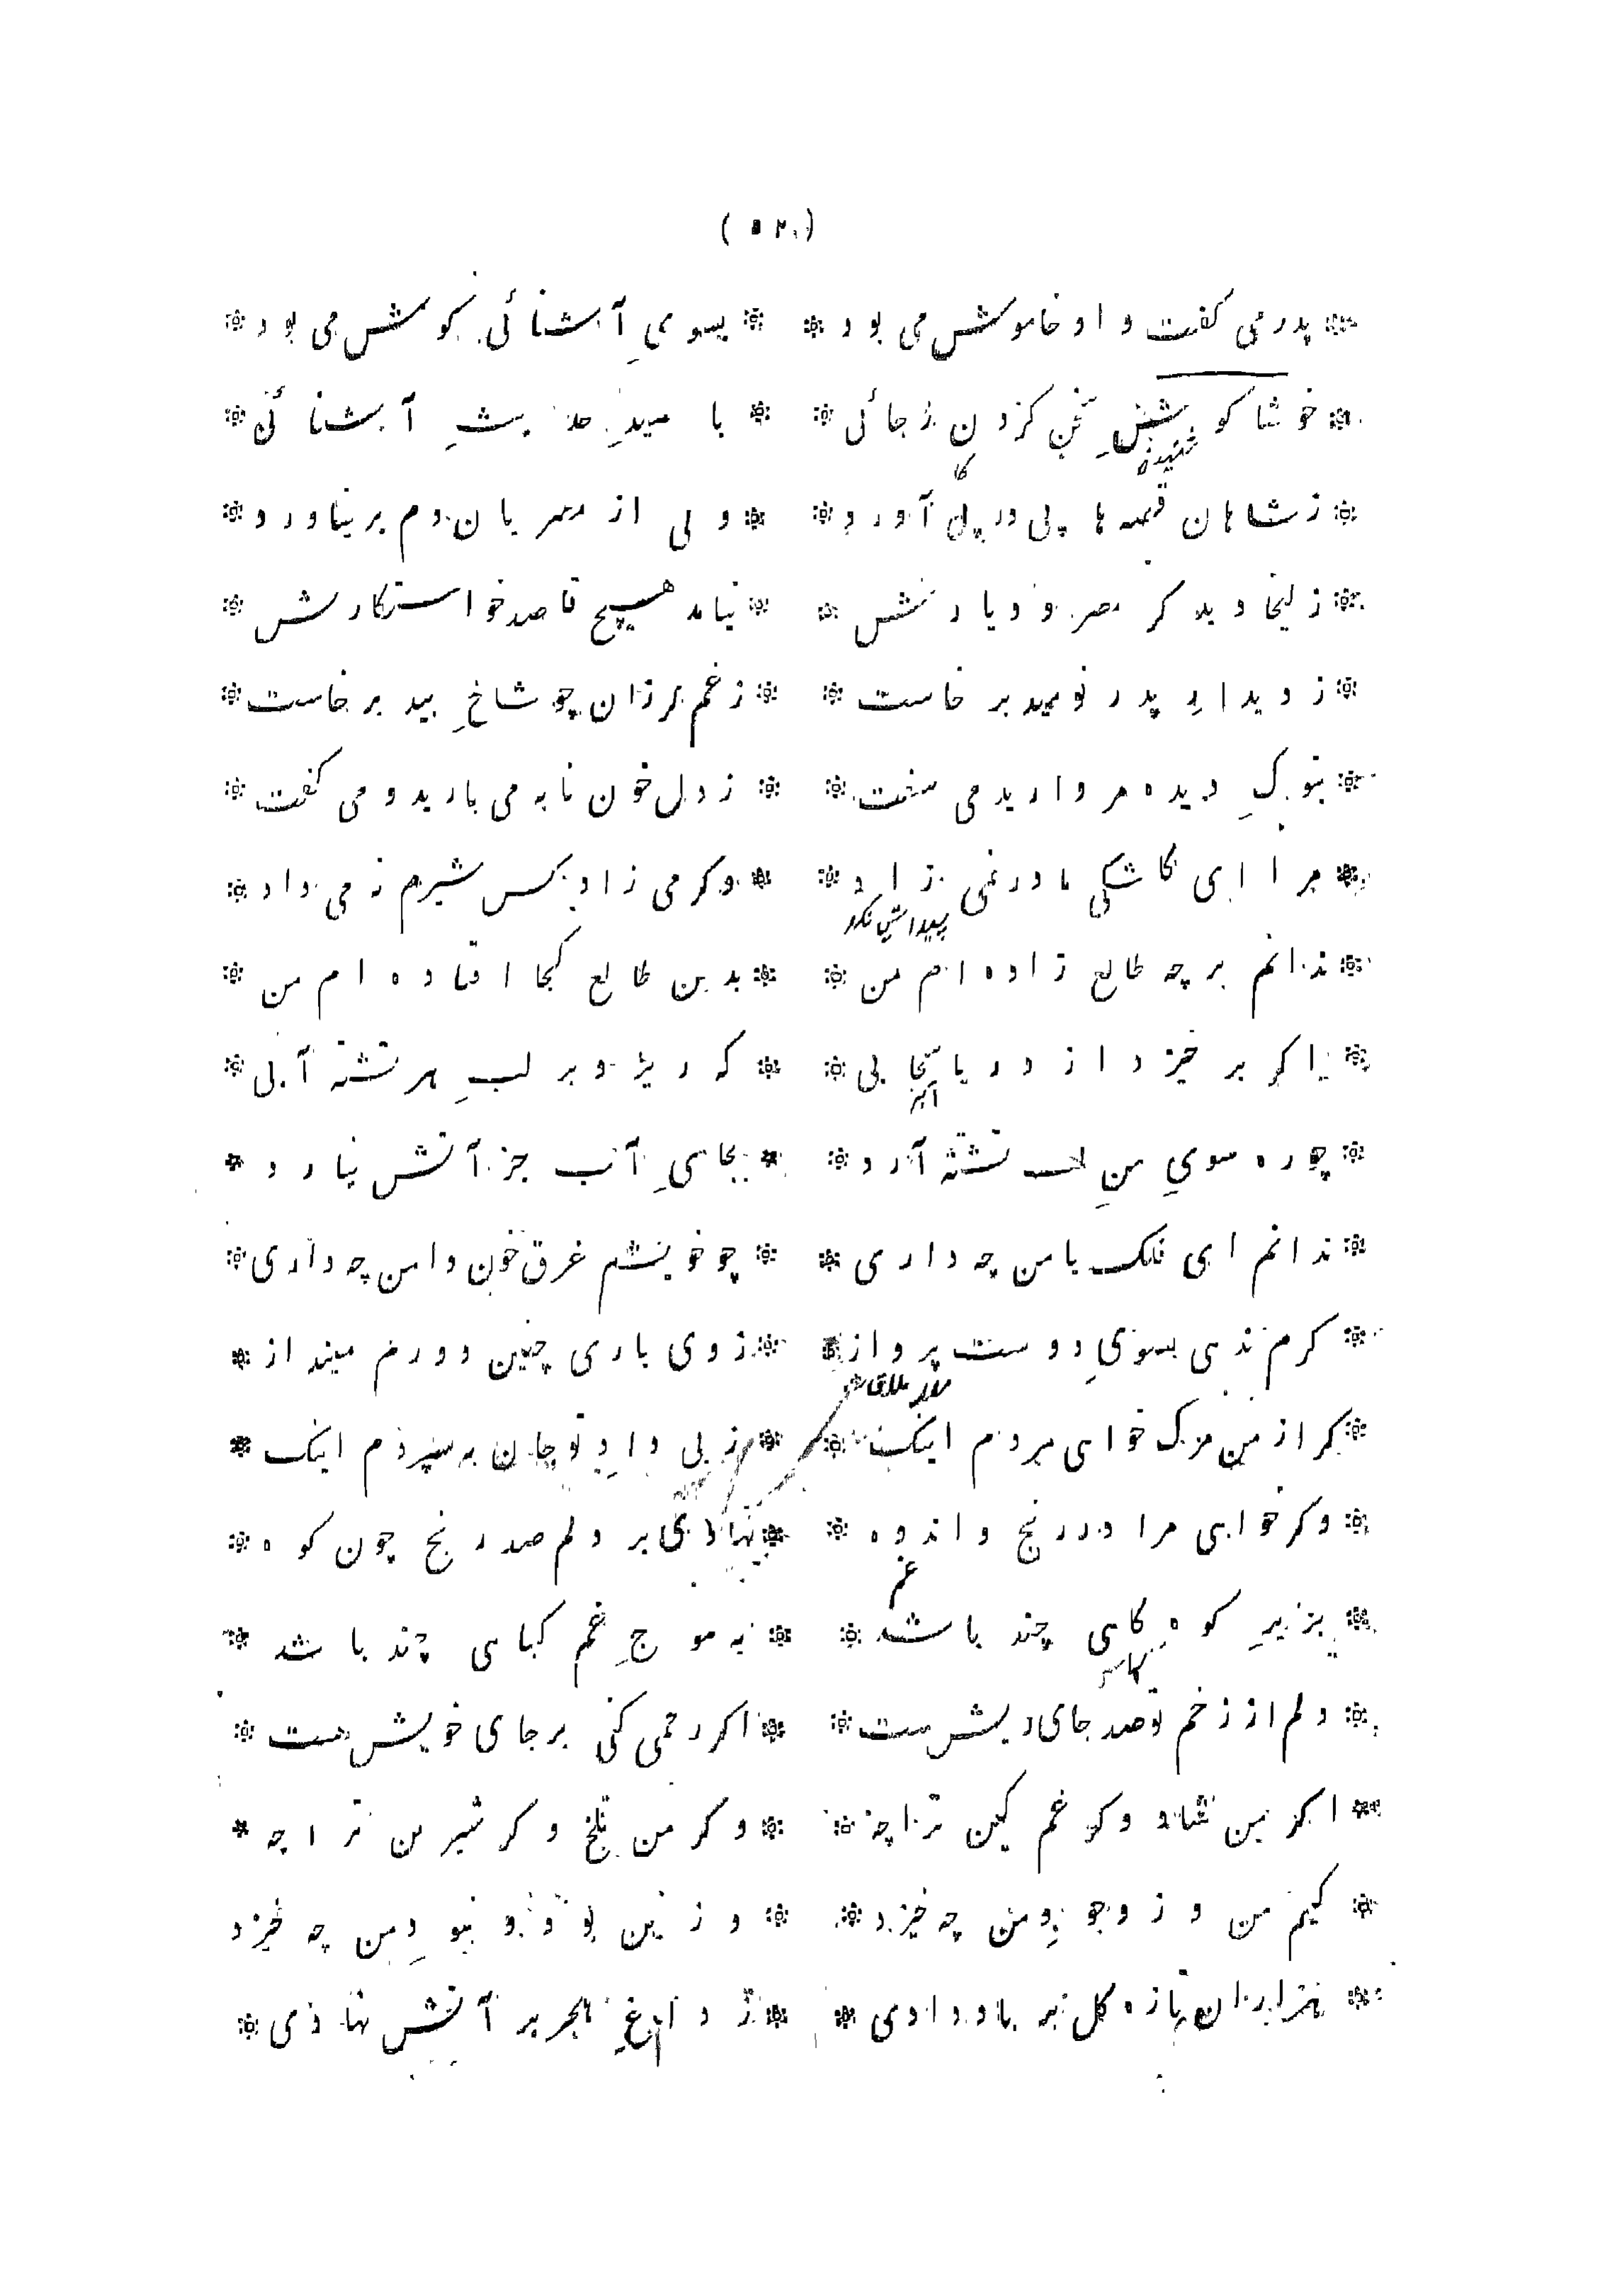 ( ۵۲ )
پدر می گفت و او خاموش می بود * بسویِ آشنائی گوش می بود
خوشا گوشِ سخن کردن ز جائی * با میدِ حدیثِ آشنائی
شنیدن
ز شاهان قصه ها پی در پی آورد * ولی از مصریان دم بر نیاورد
زلیخا دید کز مصر و دیارش * نیامد هیچ قاصد خواستگارش
ز دیدارِ پدر نومید برخاست * ز غم لرزان چو شاخِ بید برخاست
بنوکِ دیده مروارید می سفت * ز دل خون نابه می بارید و می گفت
مرا ای کاشکی مادر نمی زاد * وگر می زاد کس شیرم نه می داد
ندانم بر چه طالع زاده ام من * بدین طالع کجا افتاده ام من
اگر بر خیزد از دریا سحابی * که ریزد بر لبِ هر تشنه آبی
چو ره سویِ منِ لب تشنه آرد * بجایِ آب جز آتش نیارد
ندانم ای فلک با من چه داری * چو خویشم غرق خون دامن چه داری
گرم ندهی بسویِ دوست پرواز * ز وی باری چنین دورم مینداز
گر از من مرگ خواهی مردم اینک * ز بی دادِ تو جان به سپردم اینک
وگر خواهی مرا در رنج و اندوه * نهادی بر دلم صد رنج چون کوه
غم
بزیرِ کوه کاهی چند باشد * به موجِ غم گیاهی چند باشد
دلم از زخم تو صد جای ریش ست * اگر رحمی کنی بر جای خویش ست
اگر من شاد و گر غم گین ترا چه * وگر من تلخ و گر شیرین ترا چه
کیم من وز وجودِ من چه خیزد * وزین بود و نبودِ من چه خیزد
هزاران تازه گل بر باد دادی * ز داغِ هجر بر آتش نهادی